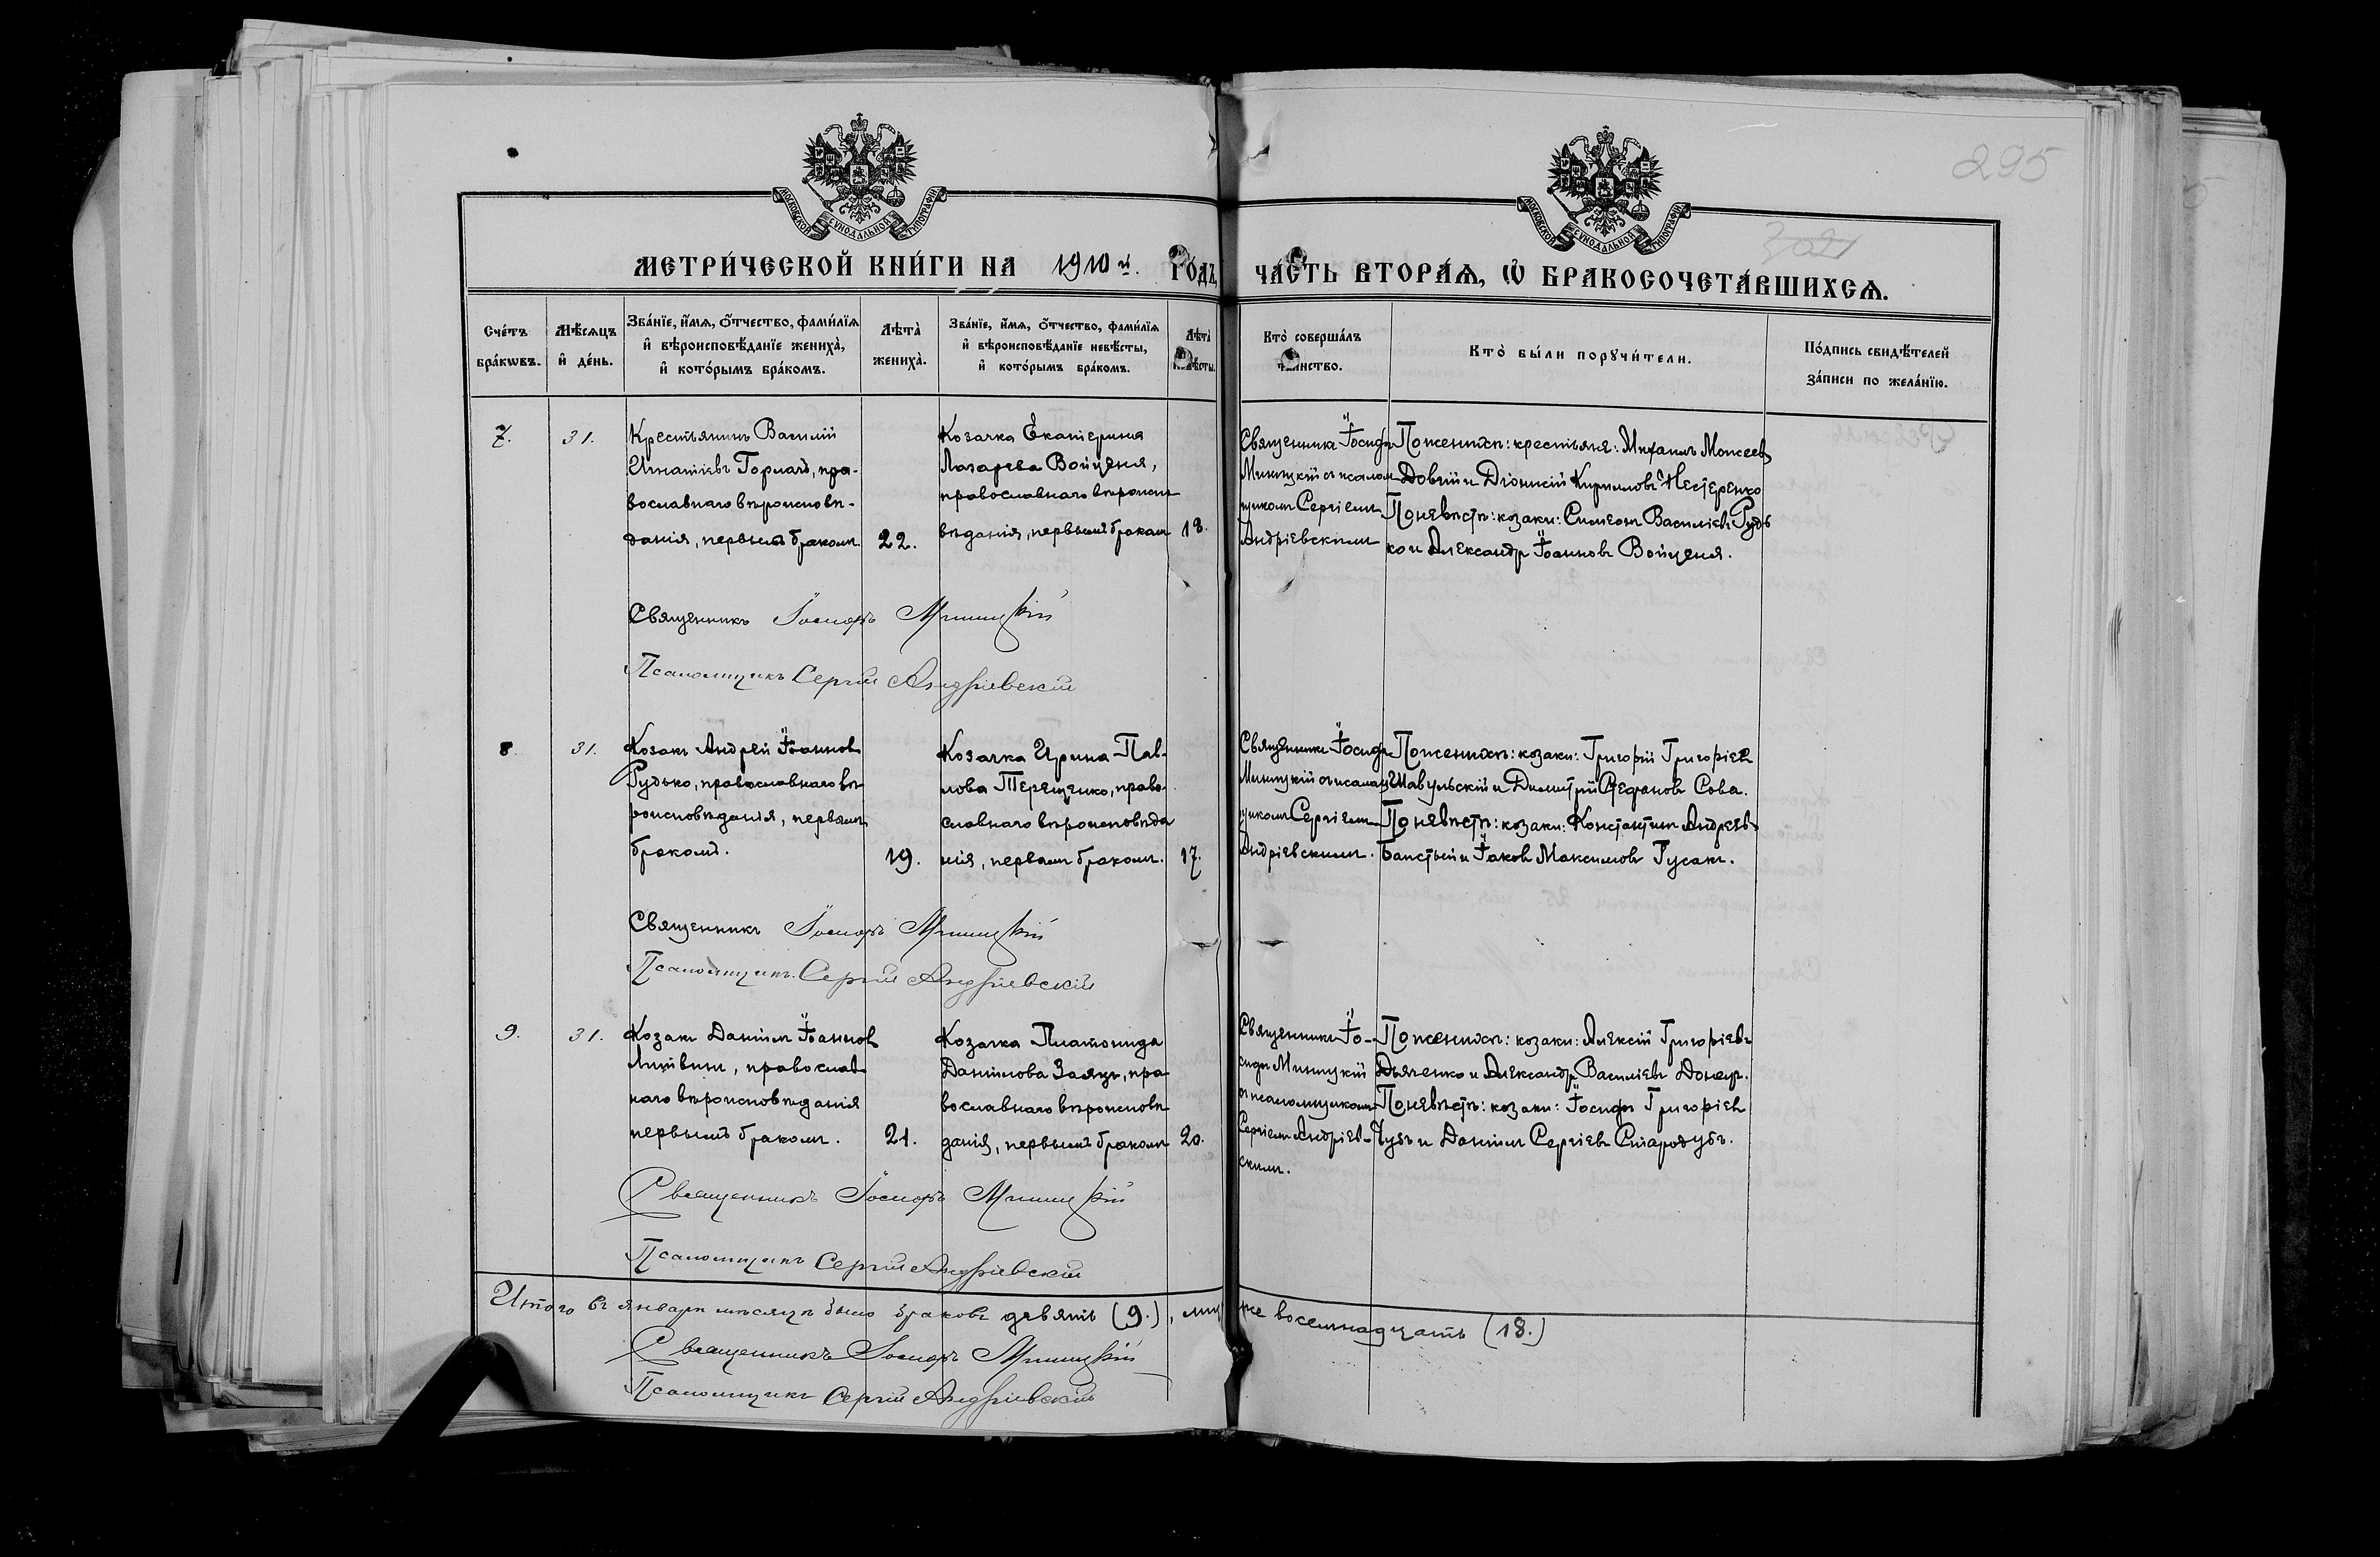 295
МОСКОВСКОЙ СУНОДАЛЬНОЙ ТИПОГРАФІИ
МОСКОВСКОЙ СУНОДАЛЬНОЙ ТИПОГРАФІИ
МЕТРИ́ЧЕСКОЙ КНИ́ГИ НА 1910 й. ГО́ДЪ, ЧА́СТЬ ВТОРА́Ѧ, Ѿ БРАКОСОЧЕТА́ВШИХСѦ.
Сче́тъ
бра́кѡвъ.
Мѣ́сяцъ
и де́нь.
Зва́нїе, и́мѧ, о́тчество, фами́лїѧ
и вѣроисповѣ́данїе жениха̀,
и кото́рымъ бра́комъ.
Лѣта̀
жениха̀.
Зва́нїе, и́мѧ, о́тчество, фами́лїѧ
и вѣроисповѣ́данїе невѣ́сты,
и кото́рымъ бра́комъ.
Лѣта̀
невѣ́сты.
Кто̀ соверша́лъ
та́инство.
Кто̀ бы́ли порꙋчи́тели.
По́дпись свидѣ́телей
за́писи по жела́нїю.
7.
31.
Крестьянинъ Василій
Игнатіевъ Горлачъ, пра-
вославнаго вѣроисповѣ-
данія, первымъ бракомъ
22.
Козачка Екатерина
Лазарева Войценя,
православнаго вѣроиспо
вѣданія, первымъ бракомъ
18.
Священникъ Іосифъ
Мишицкій съ псалом
щикомъ Сергіемъ
Андріевскимъ
По женихѣ: крестьяне: Михаилъ Моисеевъ
Довгій и Діонисій Кирилловъ Нестеренко
По невѣстѣ: козаки: Симеонъ Василіевъ Рудь
ко и Александръ Іоанновъ Войценя.
Священникъ Іосифъ Мишицкій
Псаломщикъ Сергій Андріевскій
8.
31.
Козакъ Андрей Іоанновъ
Рудько, православнаго вѣ
роисповѣданія, первымъ
бракомъ.
19.
Козачка Ирина Пав-
лова Терещенко, право-
славнаго вѣроисповѣда
нія, первымъ бракомъ.
17.
Священникъ Іосифъ
Мишицкій съ псалом
щикомъ Сергіемъ
Андріевскимъ.
По женихѣ: козаки: Григорій Григоріевъ
Шавульскій и Димитрій Стефановъ Сова.
По невѣстѣ: козаки: Константинъ Андреевъ
Баистый и Іаковъ Максимовъ Гусакъ.
Священникъ Іосифъ Мишицкій
Псаломщикъ Сергій Андріевскій
9.
31.
Козакъ Даніилъ Іоанновъ
Литвинъ, православ
наго вѣроисповѣданія
первымъ бракомъ.
21.
Козачка Платонида
Даніилова Заяцъ, пра
вославнаго вѣроисповѣ
данія, первымъ бракомъ
20.
Священникъ Іо-
сифъ Мишицкій
съ псаломщикомъ
Сергіемъ Андріев-
скимъ.
По женихѣ: козаки: Алексій Григоріевъ
Дьяченко и Александръ Василіевъ Донецъ.
По невѣстѣ: козаки: Іосифъ Григоріевъ
Чубъ и Даніилъ Сергіевъ Стародубъ.
Священникъ Іосифъ Мишицкій
Псаломщикъ Сергій Андріевскій
Итого въ январѣ мѣсяцѣ было браковъ девять (9.), лицъ же восемнадцать (18.)
Священникъ Іосифъ Мишицкій
Псаломщикъ Сергій Андріевскій